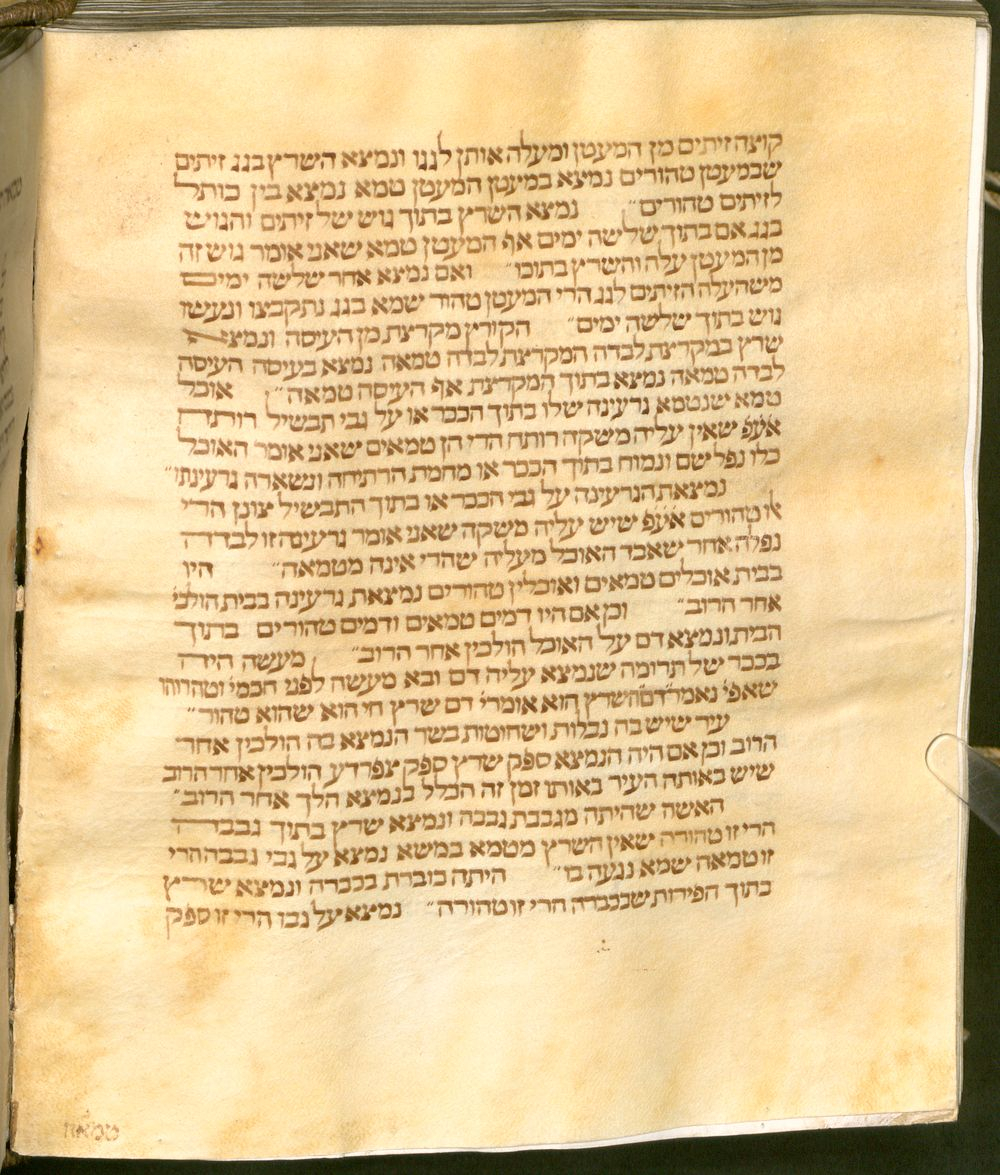 קוצה זיתים מן המעטן ומעלה אותן לגגו ונמצא השרץ בגג זיתים
שבמעטן טהורים נמצא במעטן המעטן טמא נמצא בין כותל
לזיתים טהורים״ נמצא השרץ בתוך גוש של זיתים והגוש
בגג אם בתוך שלישה ימים אף המעטן טמא שאני אומר גוש זה
מן המעטן עלה והשרץ בתוכו״ ואם נמצא אחר שלישה ימים
משהעלה הזיתים לגג הרי המעטן טהור שמא בגג נתקבצו ונעשו
גוש בתוך שלשה ימים״ הקורץ מקרצת מן העיסה ונמצא
שרץ במקרצת לבדה המקרצת לבדה טמאה נמצא בעיסה העיסה
לבדה טמאה נמצא בתוך המקרצת אף העיסה טמאה״ אוכל
טמא שנטמא גרעינה שלו בתוך הככר או על גבי תבשיל רותח
אעפ שאין עליה משקה רותח הרי הן טמאים שאני אומר האוכל
כלו נפל שם ונמוח בתוך הככר או מחמת הרתיחה ונשארה גרעינתו״
נמצאת הגרעינה על גבי הככר או בתוך התבשיל צונן הרי
אלו טהורים אעפ שיש עליה משקה שאני אומר גרעינה זו לבדה
נפלה אחר שאבד האוכל מעליה שהרי אינה מטמאה״ היו
בבית אוכלים טמאים ואוכלין טהורים נמצאת גרעינה בבית הולכי׳
אחר הרוב״ וכן אם היו דמים טמאים ודמים טהורים בתוך
הבית ונמצא דם על האוכל הולכין אחר הרוב״ מעשה היה
בככר של תרומה שנמצא עליה דם ובא מעשה לפני חכמי׳ וטהרוהו
שאפי׳ נאמר דם השרץ הוא אומרי׳ דם שרץ חי הוא שהוא טהור״
עיר שיש בה נבלות ושחוטות בשר הנמצא בה הולכין אחר
הרוב וכן אם היה הנמצא ספק שרץ ספק צפרדע הולכין אחר הרוב
שיש באותה העיר באותו זמן זה הכלל בנמצא הלך אחר הרוב״
האשה שהיתה מגבבת גבבה ונמצא שרץ בתוך גבבה
הרי זו טהורה שאין השרץ מטמא במשא נמצא על גבי גבבה הרי
זו טמאה שמא נגעה בו״ היתה כוברת בכברה ונמצא שרץ
בתוך הפירות שבכברה הרי זו טהורה״ נמצא על גבו הרי זו ספק
טמאה